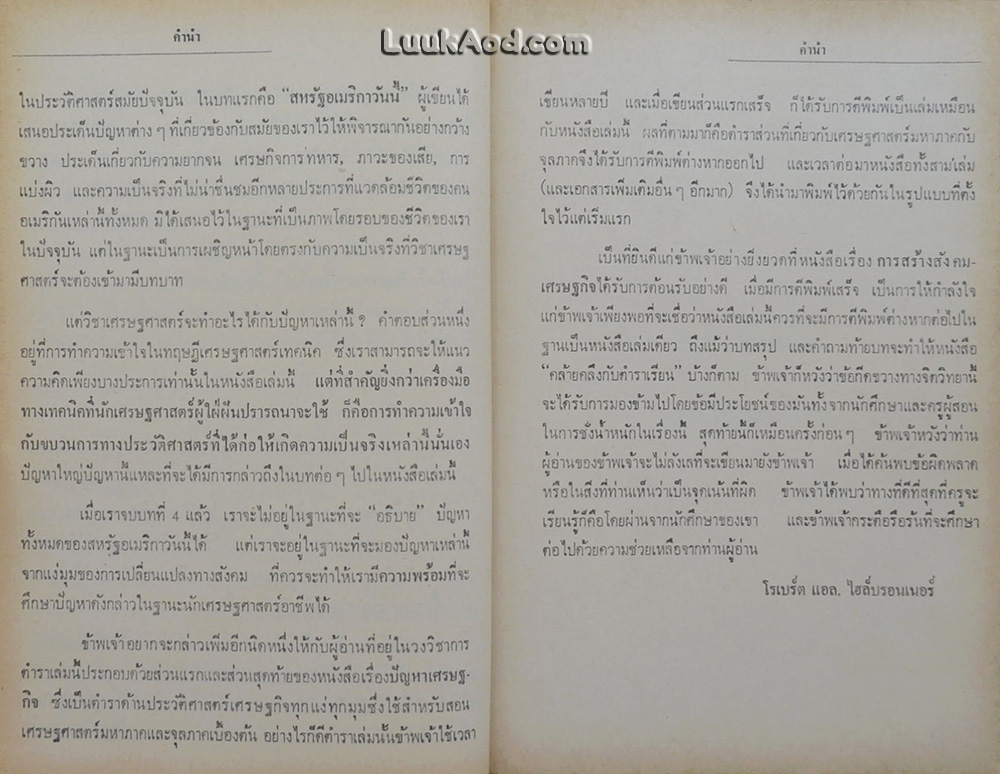 LuukAod.com
คำนำ
ในประวัติศาสตร์สมัยปัจจุบัน ในบทแรกคือ “สหรัฐอเมริกาวันนี้” ผู้เขียนได้
เสนอประเด็นปัญหาต่าง ๆ ที่เกี่ยวข้องกับสมัยของเราไว้ให้พิจารณากันอย่างกว้าง
ขวาง ประเด็นเกี่ยวกับความยากจน เศรษฐกิจการทหาร, ภาวะของเสีย, การ
แบ่งผิว และความเป็นจริงที่ไม่น่าชื่นชมอีกหลายประการที่แวดล้อมชีวิตของคน
อเมริกันเหล่านี้ทั้งหมด มิได้เสนอไว้ในฐานะที่เป็นภาพโดยรอบของชีวิตของเรา
ในปัจจุบัน แต่ในฐานะเป็นการเผชิญหน้าโดยตรงกับความเป็นจริงที่วิชาเศรษฐ
ศาสตร์จะต้องเข้ามามีบทบาท
แต่วิชาเศรษฐศาสตร์จะทำอะไรได้กับปัญหาเหล่านี้ ? คำตอบส่วนหนึ่ง
อยู่ที่การทำความเข้าใจในทฤษฎีเศรษฐศาสตร์เทคนิค ซึ่งเราสามารถจะให้แนว
ความคิดเพียงบางประการเท่านั้นในหนังสือเล่มนี้ แต่ที่สำคัญยิ่งกว่าเครื่องมือ
ทางเทคนิคที่นักเศรษฐศาสตร์ผู้ใฝ่ฝันปรารถนาจะใช้ ก็คือการทำความเข้าใจ
กับขบวนการทางประวัติศาสตร์ที่ได้ก่อให้เกิดความเป็นจริงเหล่านี้นั่นเอง
ปัญหาใหญ่ปัญหานี้แหละที่จะได้มีการกล่าวถึงในบทต่อ ๆ ไปในหนังสือเล่มนี้
เมื่อเราจบบทที่ 4 แล้ว เราจะไม่อยู่ในฐานะที่จะ “อธิบาย” ปัญหา
ทั้งหมดของสหรัฐอเมริกาวันนี้ได้ แต่เราจะอยู่ในฐานะที่จะมองปัญหาเหล่านี้
จากแง่มุมของการเปลี่ยนแปลงทางสังคม ที่ควรจะทำให้เรามีความพร้อมที่จะ
ศึกษาปัญหาดังกล่าวในฐานะนักเศรษฐศาสตร์อาชีพได้
ข้าพเจ้าอยากจะกล่าวเพิ่มอีกนิดหนึ่งให้กับผู้อ่านที่อยู่ในวงวิชาการ
ตำราเล่มนี้ประกอบด้วยส่วนแรกและส่วนสุดท้ายของหนังสือเรื่องปัญหาเศรษฐ-
กิจ ซึ่งเป็นตำราด้านประวัติศาสตร์เศรษฐกิจทุกแง่ทุกมุมซึ่งใช้สำหรับสอน
เศรษฐศาสตร์มหาภาคและจุลภาคเบื้องต้น อย่างไรก็ดีตำราเล่มนั้นข้าพเจ้าใช้เวลา
คำนำ
เขียนหลายปี และเมื่อเขียนส่วนแรกเสร็จ ก็ได้รับการตีพิมพ์เป็นเล่มเหมือน
กับหนังสือเล่มนี้ ผลที่ตามมาก็คือตำราส่วนที่เกี่ยวกับเศรษฐศาสตร์มหาภาคกับ
จุลภาคจึงได้รับการตีพิมพ์ต่างหากออกไป และเวลาต่อมาหนังสือทั้งสามเล่ม
(และเอกสารเพิ่มเติมอื่น ๆ อีกมาก) จึงได้นำมาพิมพ์ไว้ด้วยกันในรูปแบบที่ตั้ง
ใจไว้แต่เริ่มแรก
เป็นที่ยินดีแก่ข้าพเจ้าอย่างยิ่งยวดที่หนังสือเรื่อง การสร้างสังคม-
เศรษฐกิจได้รับการต้อนรับอย่างดี เมื่อมีการตีพิมพ์เสร็จ เป็นการให้กำลังใจ
แก่ข้าพเจ้าเพียงพอที่จะเชื่อว่าหนังสือเล่มนี้ควรที่จะมีการตีพิมพ์ต่างหากต่อไปใน
ฐานเป็นหนังสือเล่มเดียว ถึงแม้ว่าบทสรุป และคำถามท้ายบทจะทำให้หนังสือ
“คล้ายคลึงกับตำราเรียน” บ้างก็ตาม ข้าพเจ้าก็หวังว่าข้อกีดขวางทางจิตวิทยานี้
จะได้รับการมองข้ามไปโดยข้อมีประโยชน์ของมันทั้งจากนักศึกษาและครูผู้สอน
ในการชั่งน้ำหนักในเรื่องนี้ สุดท้ายนี้ก็เหมือนครั้งก่อน ๆ ข้าพเจ้าหวังว่าท่าน
ผู้อ่านของข้าพเจ้าจะไม่ลังเลที่จะเขียนมายังข้าพเจ้า เมื่อได้ค้นพบข้อผิดพลาด
หรือในสิ่งที่ท่านเห็นว่าเป็นจุดเน้นที่ผิด ข้าพเจ้าได้พบว่าทางที่ดีที่สุดที่ครูจะ
เรียนรู้ก็คือโดยผ่านจากนักศึกษาของเขา และข้าพเจ้ากระตือรือร้นที่จะศึกษา
ต่อไปด้วยความช่วยเหลือจากท่านผู้อ่าน
โรเบร์ต แอล. ไฮล์บรอนเนอร์